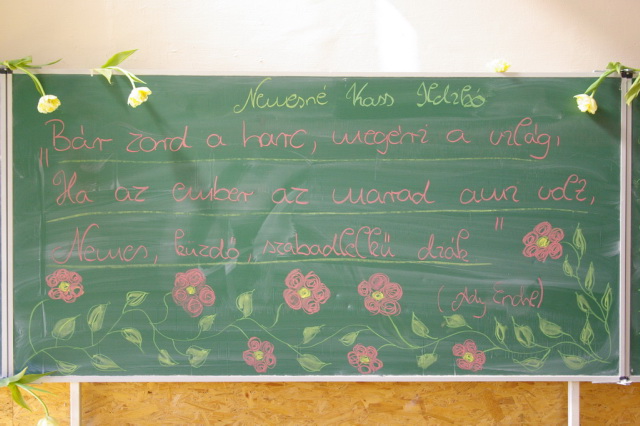 Nemesné Kass Ildikó
„Bár zord a harc, megéri a világ,
Ha az ember az marad ami volt,
Nemes, küzdő, szabadlelkű diák"
(Ady Endre)